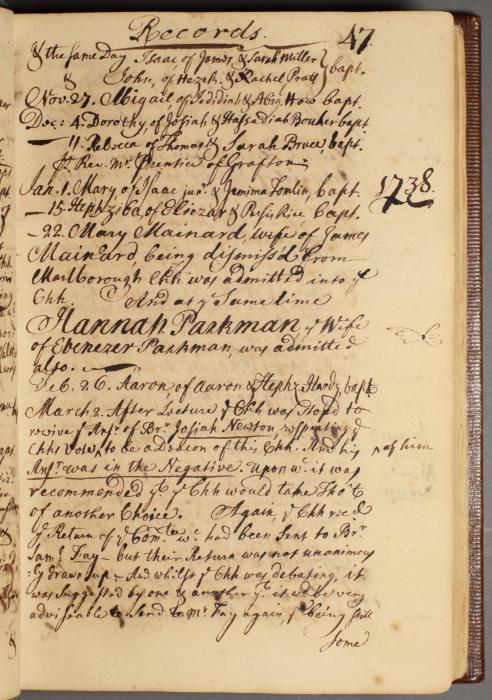 Records. 47.
& the same Day Isaac of James & Sarah Miller
& John, of Hezek. & Rachel Pratt } bapt.
Nov. 27. Abigail of Jedidiah & Abig. How bapt.
Dec: 4. Dorothy, of Josiah & Hassadiah Bouker bapt
— 11. Rebecca of Thomas & Sarah Bruce, bapt.
pr. Rev. Mr. Prentice of Grafton,
Jan. 1. Mary of Isaac junr. & Jemima Tomlin, bapt. 1738.
— 15. Hephziba, of Eliezar & Persis Rice bapt.
— 22. Mary Mainard, wife of James
Mainard, being dismiss'd from
Marlborough Chh was admitted into ye
Chh. And at ye Same time
Hannah Parkman, ye Wife
of Ebenezer Parkman, was admitted
also.
Feb. 26. Aaron, of Aaron & Heph.z Hardy, bapt
March 2. After Lecture ye Chh was Stopd to
receive ye Ansr. of Br. Josiah Newton respecting ye
Chhs Vote, to be a Deacon of this Chh. And his
of him
Ansr. was in the Negative. Upon wc. it was
recommended yt ye Chh would take tho't
of another Choice. Again, ye Chh rec'd
ye Return of ye Comtee wc. had been Sent to Br.
Saml. Fay — but their Return was not unanimous
:ly drawn up — And whilst ye Chh was debating, it
was Suggested by one & another yt it wd be very
advisable to Send to Mr. Fay again, he being Still
Some